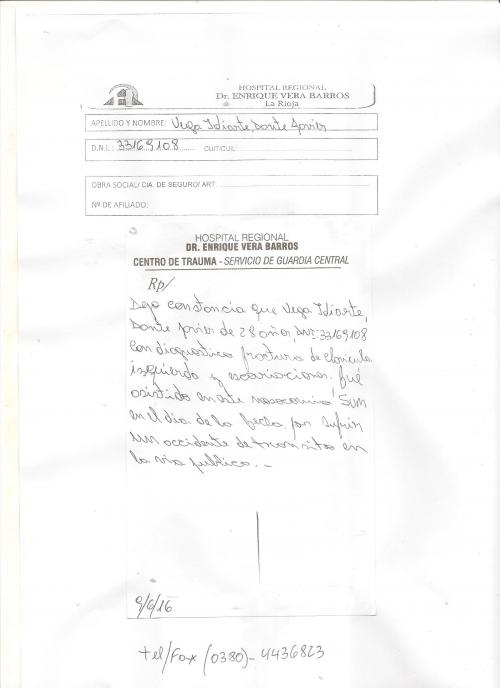 HOSPITAL REGIONAL
Dr. ENRIQUE VERA BARROS
La Rioja
APELLIDO Y NOMBRE: Vega Idiarte, Dante Javier
D.N.I.: 33169108 CUIT/CUIL:
OBRA SOCIAL/ CIA. DE SEGURO/ ART:
Nº DE AFILIADO:
HOSPITAL REGIONAL
DR. ENRIQUE VERA BARROS
CENTRO DE TRAUMA - SERVICIO DE GUARDIA CENTRAL
Rp/
Dejo constancia que Vega Idiarte,
Dante Javier de 28 años, DNI: 33169108
con diagnostico fractura de clavicula
izquierda y escoriaciones. fué
asistido en este nosocomio
en el dia de la fecha por sufrir
un accidente de transito en
la via publica. -
9/6/16
tel/Fax (0380)- 4436823